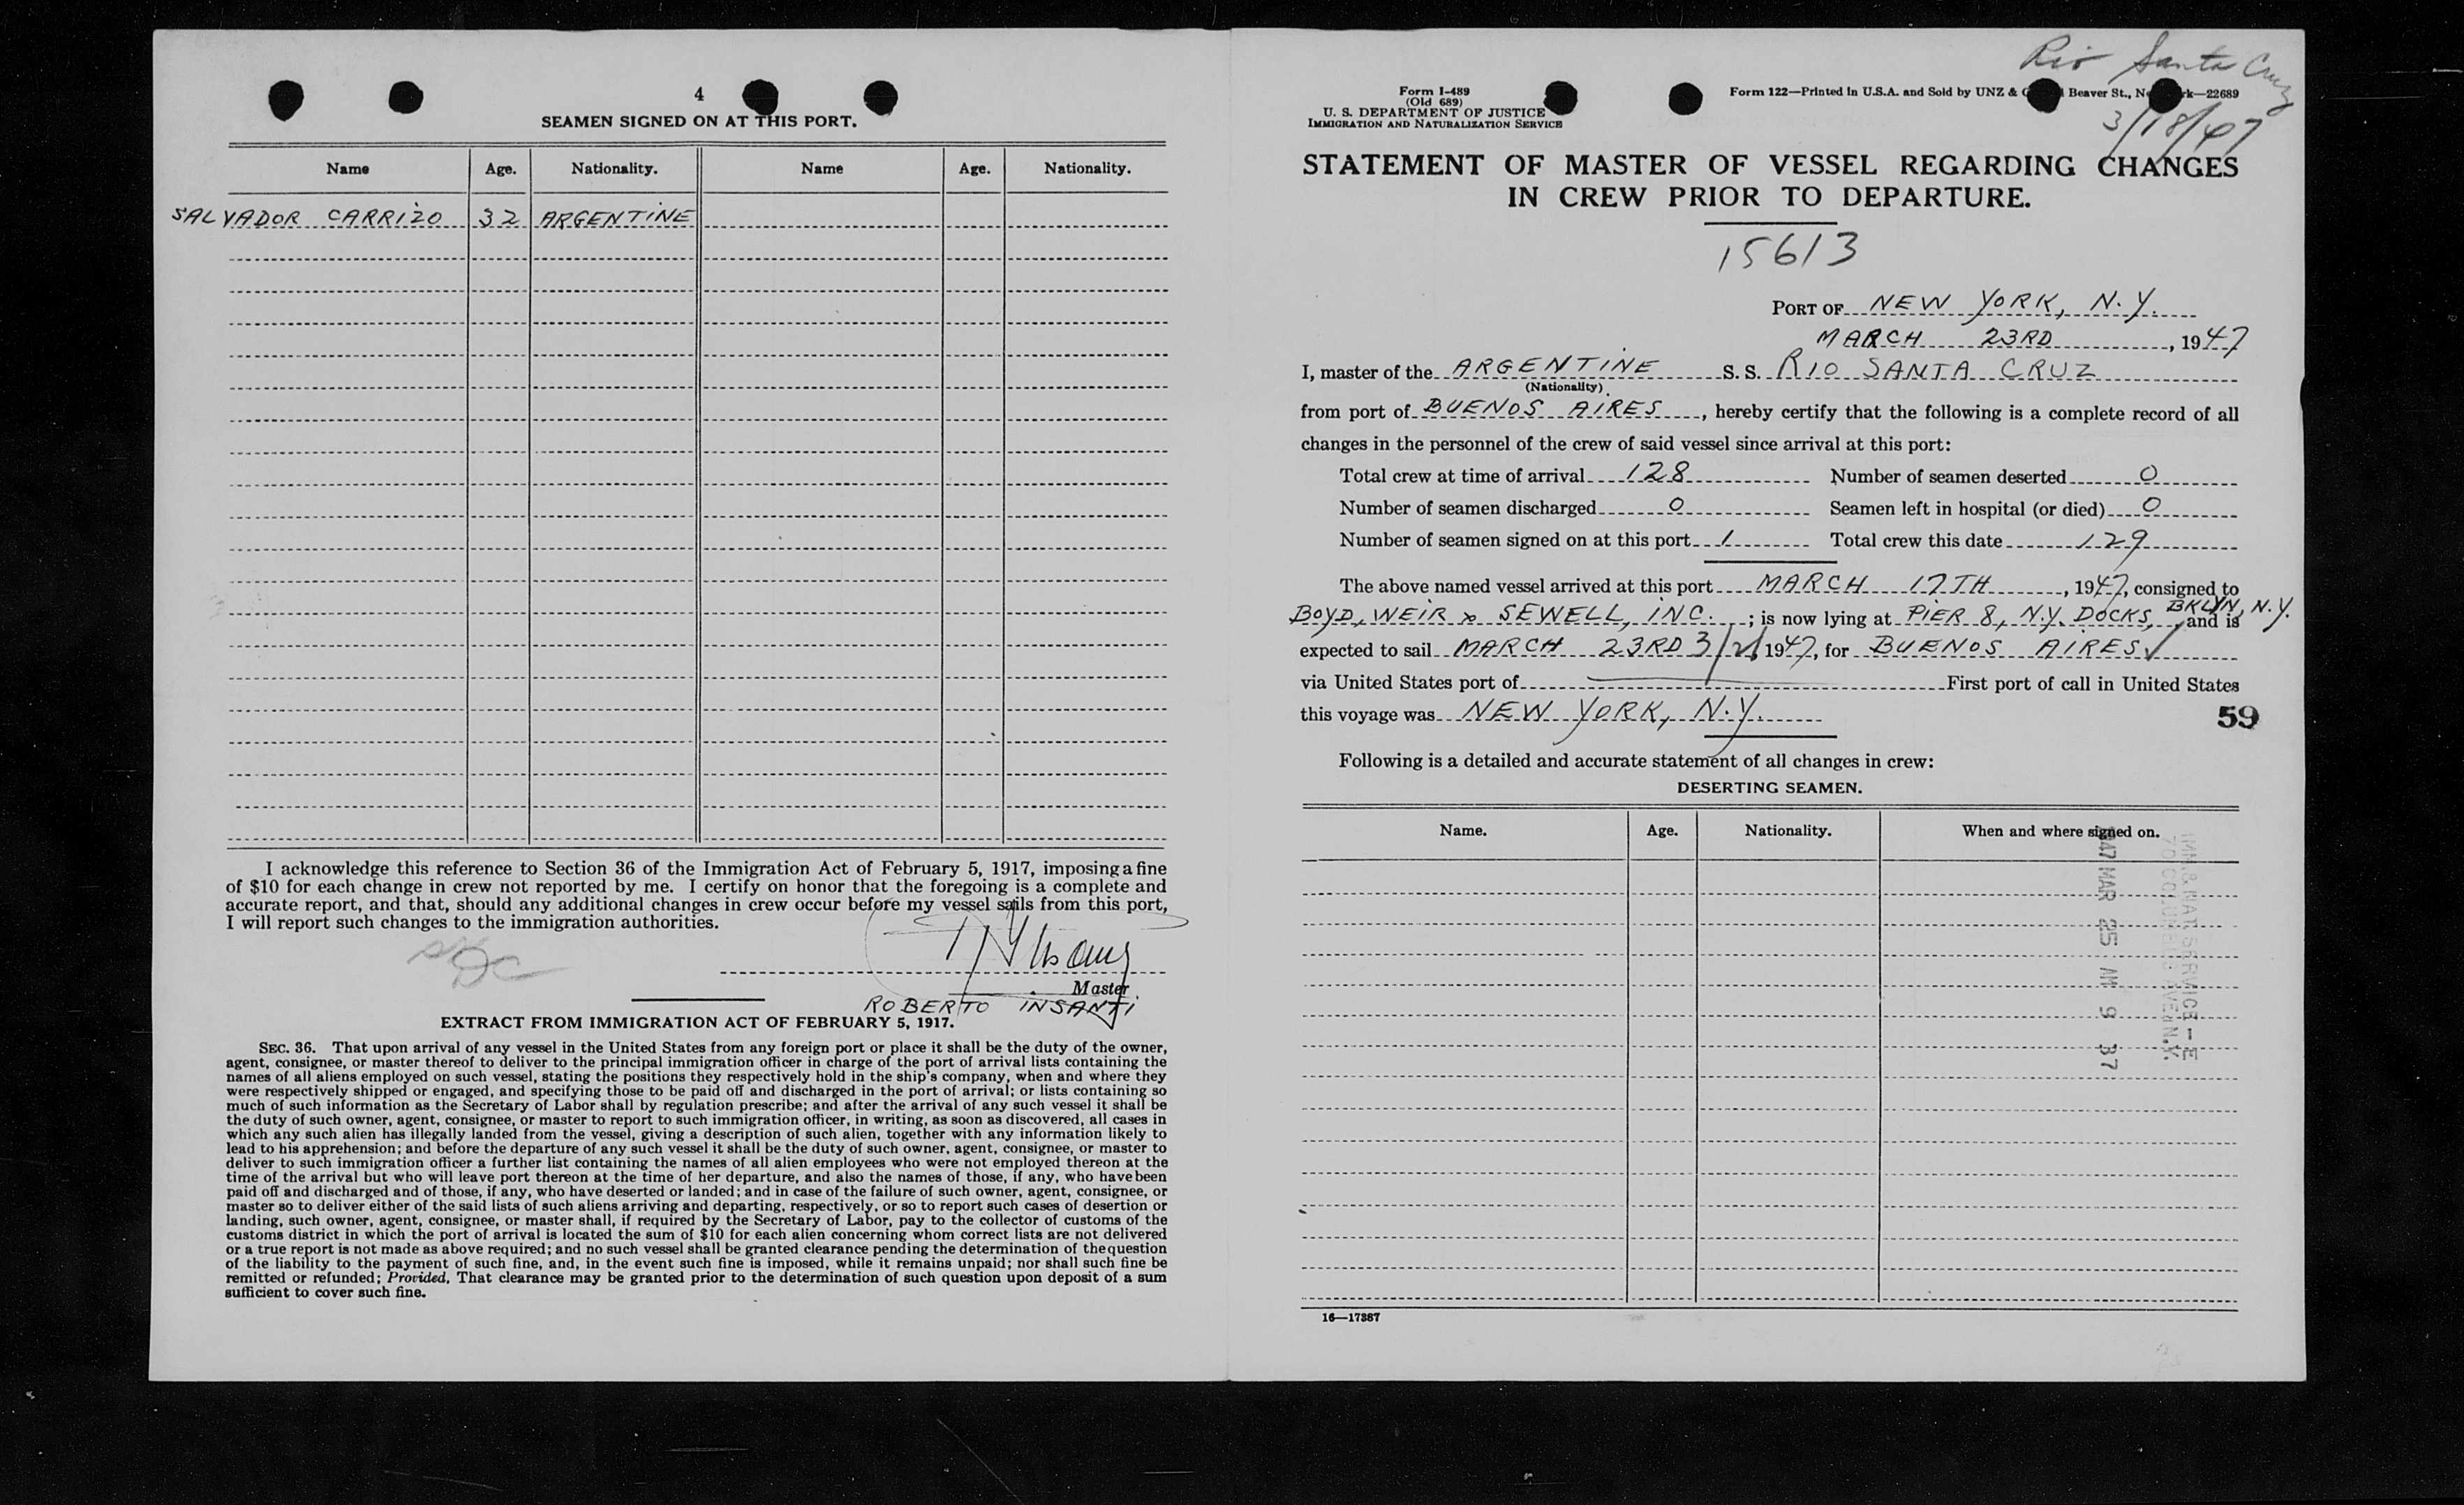 4
SEAMEN SIGNED ON AT THIS PORT.
Name Age. Nationality. Name Age. Nationality.
SALVADOR CARRIZO 32 ARGENTINE
I acknowledge this reference to Section 36 of the Immigration Act of February 5, 1917, imposing a fine
of $10 for each change in crew not reported by me. I certify on honor that the foregoing is a complete and
accurate report, and that, should any additional changes in crew occur before my vessel sails from this port,
I will report such changes to the immigration authorities.
Master
ROBERTO INSANTI
EXTRACT FROM IMMIGRATION ACT OF FEBRUARY 5, 1917.
SEC. 36. That upon arrival of any vessel in the United States from any foreign port or place it shall be the duty of the owner,
agent, consignee, or master thereof to deliver to the principal immigration officer in charge of the port of arrival lists containing the
names of all aliens employed on such vessel, stating the positions they respectively hold in the ship's company, when and where they
were respectively shipped or engaged, and specifying those to be paid off and discharged in the port of arrival; or lists containing so
much of such information as the Secretary of Labor shall by regulation prescribe; and after the arrival of any such vessel it shall be
the duty of such owner, agent, consignee, or master to report to such immigration officer, in writing, as soon as discovered, all cases in
which any such alien has illegally landed from the vessel, giving a description of such alien, together with any information likely to
lead to his apprehension; and before the departure of any such vessel it shall be the duty of such owner, agent, consignee, or master to
deliver to such immigration officer a further list containing the names of all alien employees who were not employed thereon at the
time of the arrival but who will leave port thereon at the time of her departure, and also the names of those, if any, who have been
paid off and discharged and of those, if any, who have deserted or landed; and in case of the failure of such owner, agent, consignee, or
master so to deliver either of the said lists of such aliens arriving and departing, respectively, or so to report such cases of desertion or
landing, such owner, agent, consignee, or master shall, if required by the Secretary of Labor, pay to the collector of customs of the
customs district in which the port of arrival is located the sum of $10 for each alien concerning whom correct lists are not delivered
or a true report is not made as above required; and no such vessel shall be granted clearance pending the determination of the question
of the liability to the payment of such fine, and, in the event such fine is imposed, while it remains unpaid; nor shall such fine be
remitted or refunded; Provided, That clearance may be granted prior to the determination of such question upon deposit of a sum
sufficient to cover such fine.
Rio Santa Cruz
3/18/47
Form I-489
(Old 689)
U. S. DEPARTMENT OF JUSTICE
IMMIGRATION AND NATURALIZATION SERVICE
Form 122—Printed in U.S.A. and Sold by UNZ & Beaver St., —22689
STATEMENT OF MASTER OF VESSEL REGARDING CHANGES
IN CREW PRIOR TO DEPARTURE.
15613
PORT OF NEW YORK, N.Y.
MARCH 23RD, 1947
I, master of the ARGENTINE S. S. RIO SANTA CRUZ
(Nationality)
from port of BUENOS AIRES, hereby certify that the following is a complete record of all
changes in the personnel of the crew of said vessel since arrival at this port:
Total crew at time of arrival 128 Number of seamen deserted 0
Number of seamen discharged 0 Seamen left in hospital (or died) 0
Number of seamen signed on at this port 1 Total crew this date 129
The above named vessel arrived at this port MARCH 17TH, 1947, consigned to
BOYD, WEIR & SEWELL, INC.; is now lying at PIER 8, N.Y. DOCKS, BKLYN, N.Y. and is
expected to sail MARCH 23RD 3/21 1947, for BUENOS AIRES ✓
via United States port of First port of call in United States
this voyage was NEW YORK, N.Y.
59
Following is a detailed and accurate statement of all changes in crew:
DESERTING SEAMEN.
Name. Age. Nationality. When and where signed on.
IMM. & NAT. SERVICE - E
70 COLUMBUS AVE. N.Y.
1947 MAR 25 AM 9 37
16—17387